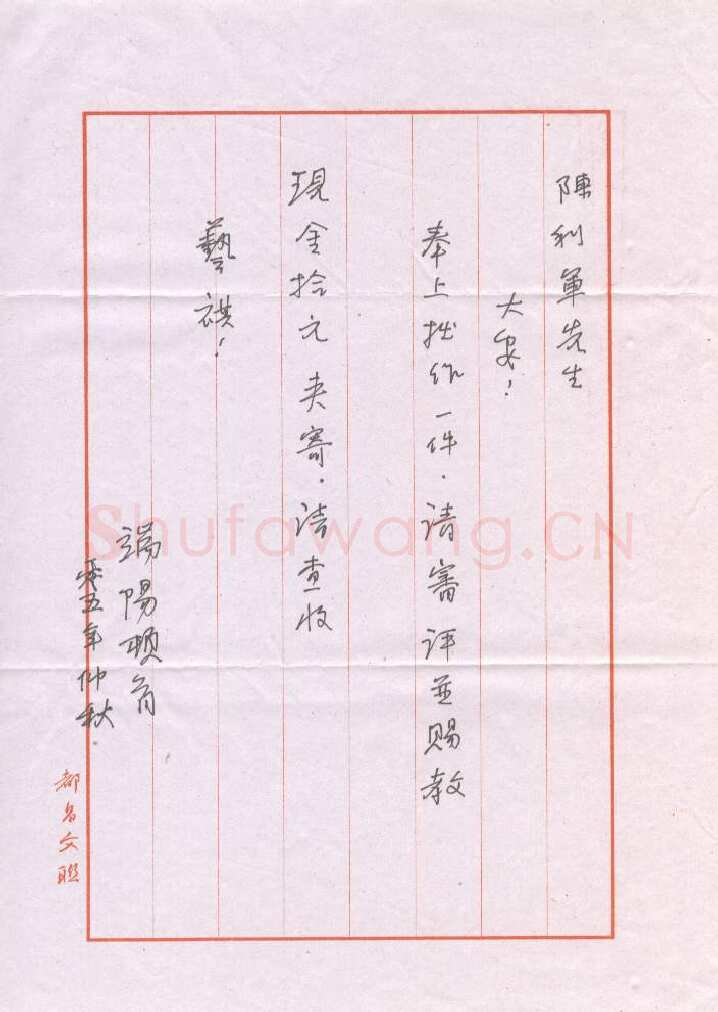 陳利軍先生
大安！
奉上拙作一件．请審评並赐教
現金拾元夹寄．请查收
藝祺！
端陽頓首
零五年仲秋．
都昌文联
Shufawang.CN